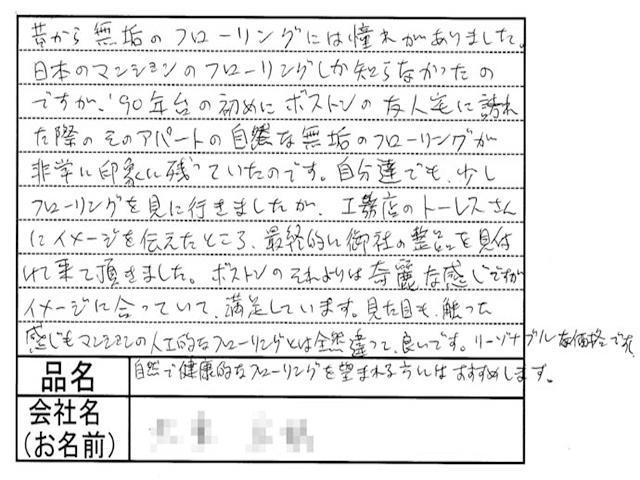 昔から無垢のフローリングには憧れがありました。
日本のマンションのフローリングしか知らなかったの
ですが、'90年台の初めにボストンの友人宅に誘われ
た際のそのアパートの自然な無垢のフローリングが
非常に印象に残っていたのです。自分達でも、少し
フローリングを見に行きましたが、工務店のトーレスさん
にイメージを伝えたところ、最終的に御社の製品を見付
けて来て頂きました。ボストンのそれよりは奇麗な感じですが
イメージに合っていて、満足しています。見た目も、触った
感じもマンションの人工的なフローリングとは全然違って、良いです。リーゾナブルな価格です。
品名 自然で健康的なフローリングを望まれる方にはおすすめします。
会社名
(お名前)